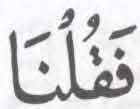 فَقُلْنَا